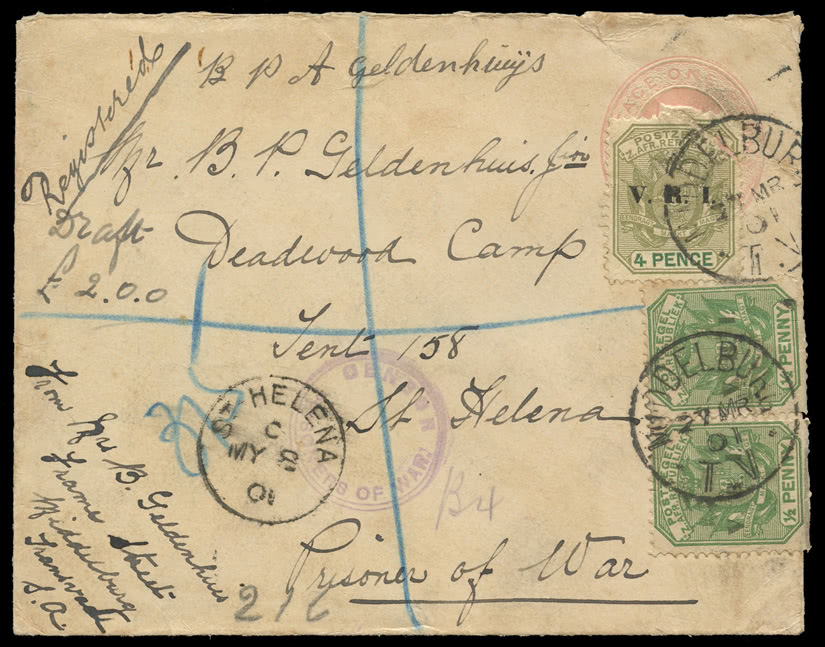 B P A Geldenhuijs
Registered
Mr. B. P. Geldenhuis. Jnr
Draft
£ 2.0.0
Deadwood Camp
Tent 158
St Helena
Prisoner of War
From Mrs B. Geldenhuis
Frame Street
Middelburg
Transvaal
S.A
B4
POSTZE
Z. AFR. REP
V. R. I.
4 PENCE
MIDDELBURG
MR
01
POSTZEGEL
Z. AFR. REPUBLIEK
½ PENNY
MIDDELBURG
27 MR
01
T.V.
POSTZEGEL
Z. AFR. REPUBLIEK
½ PENNY
ST HELENA
C
MY 8
01
CENSOR
PRISONERS OF WAR